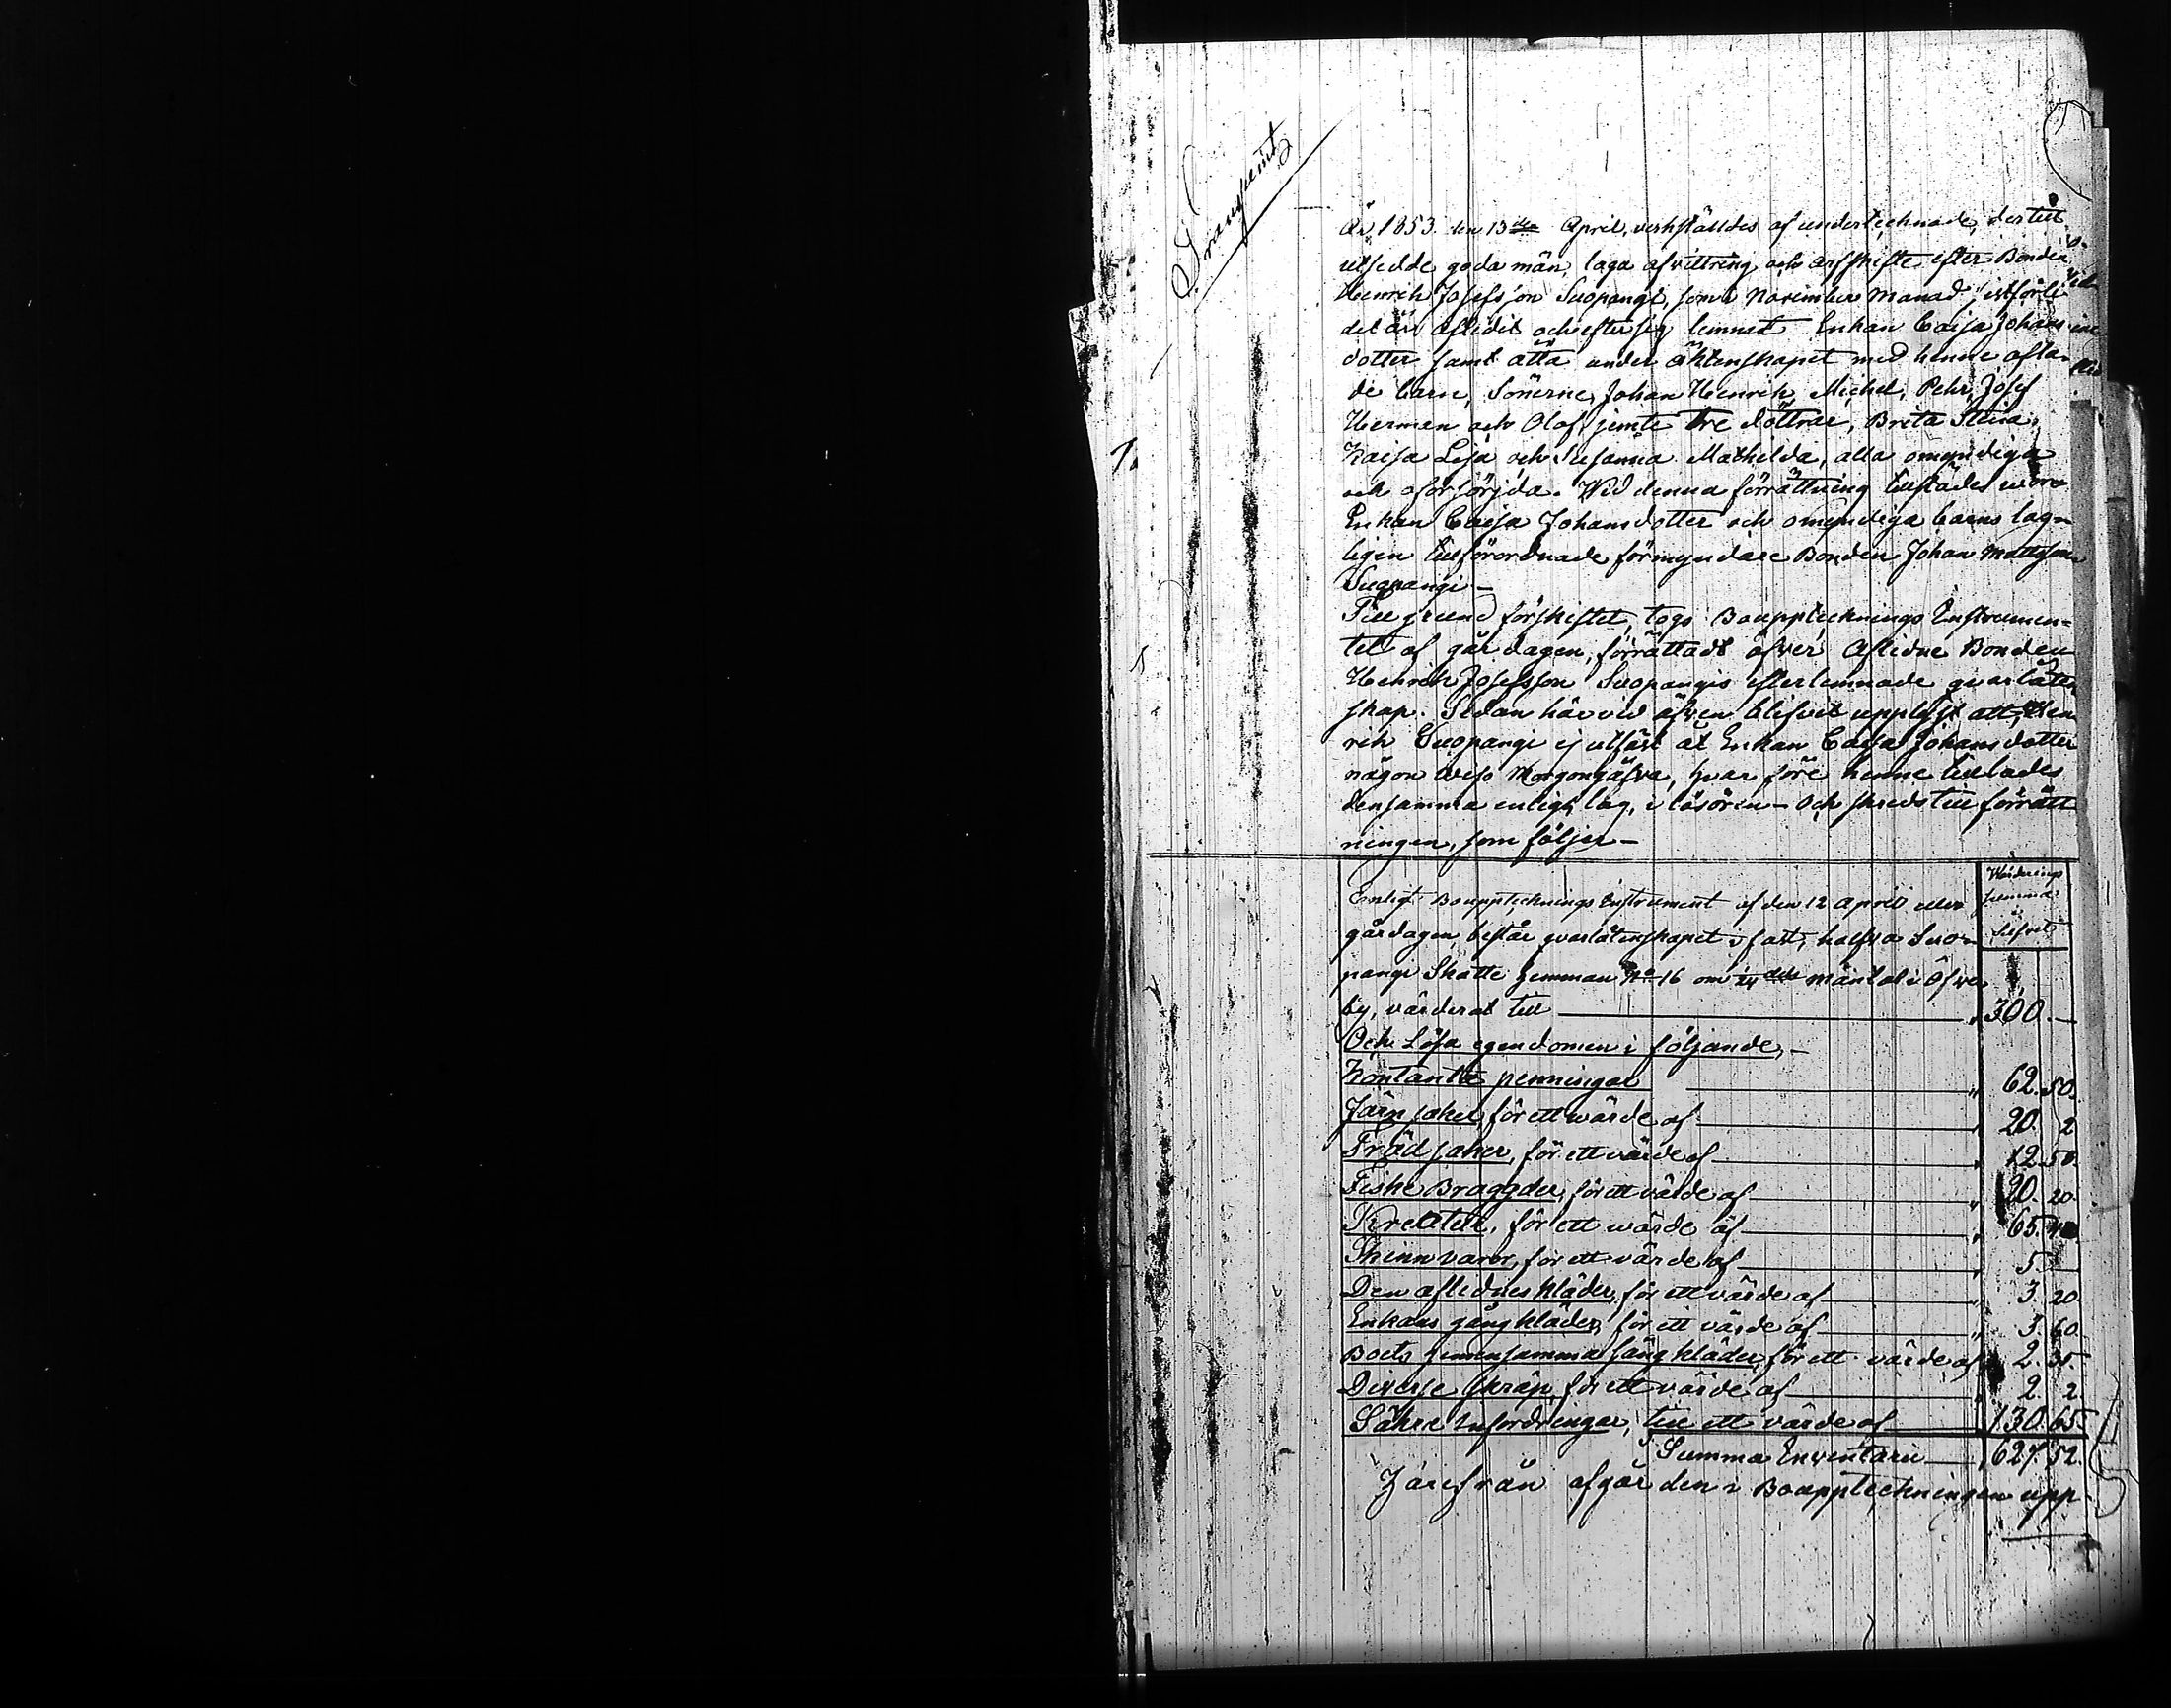 Transumt
År 1853 den 13de April, verkställdes af undertecknade, dertill
utsedde goda män, laga afvittring och arfskifte efter Bonden
Henrik Josefsson Suopangi, som i November Månad sistförli
det år aflidit och efter sig lemnat Enkan Caisa Johans
dotter samt åtta under äktenskapet med henne afla-
de barn, Sönerne, Johan Henrik, Michel, Pehr, Josef
Herman och Olof, jemte tre döttrar, Brita Stina,
Kaisa Lisa och Susanna Mathilda, alla omyndiga
och oförsörjda. Wid denna förrättning tillstädes woro
Enkan Caisa Johansdotter och omyndiga barns lag-
ligen tillförordnade förmyndare Bonden Johan Mattsson
Suopangi –
Till grund för skiftet, togs Bouppteknings Instrumen-
tet af går dagen, förrättadt öfver Aflidne Bonden
Henrik Josefsson Suopangis efterlemnade qvarlåten
skap. Sedan härvid äfven blifvit upplyst att, Hen
rik Suopangi ej utfäst åt Enkan Caisa Johansdotter
någon wiss Morgongåfva, hvarföre henne tillades
densamma enligt lag, i lösören – och skreds till förrätt
ningen, som följer –
Wärderings
summa
i
Silfver
Enligt Bouppteknings Instrument af den 12 April eller
gårdagen, består qvarlåtenskapet i fast, halfva Suo-
pangi Skatte hemman No 16 om 1/24 dels mantal i Öfver
by, värderat till 300. –
Och Lösa egendomen i följande, –
Kontanta penningar 62. 50.
Järn saker för ett wärde af 20. 2
Träd saker, för ett wärde af 12. 50.
Fiske Braggder, för ett värde af 20. 20.
Kreatur, för ett wärde af 65. 40
Skinnvaror, för ett värde af 5. –
Den aflidnes kläder, för ett värde af 3. 20
Enkans gångkläder, för ett värde af 3. 60.
Boets gemensamma sängkläder, för ett värde af 2. 35.
Diverse skräp, för ett värde af 2. 2.
Säkre Infordringar, till ett värde af 130. 65
Summa Inventarii 627. 52.
Härifrån afgår den i Boupptekningen upp-